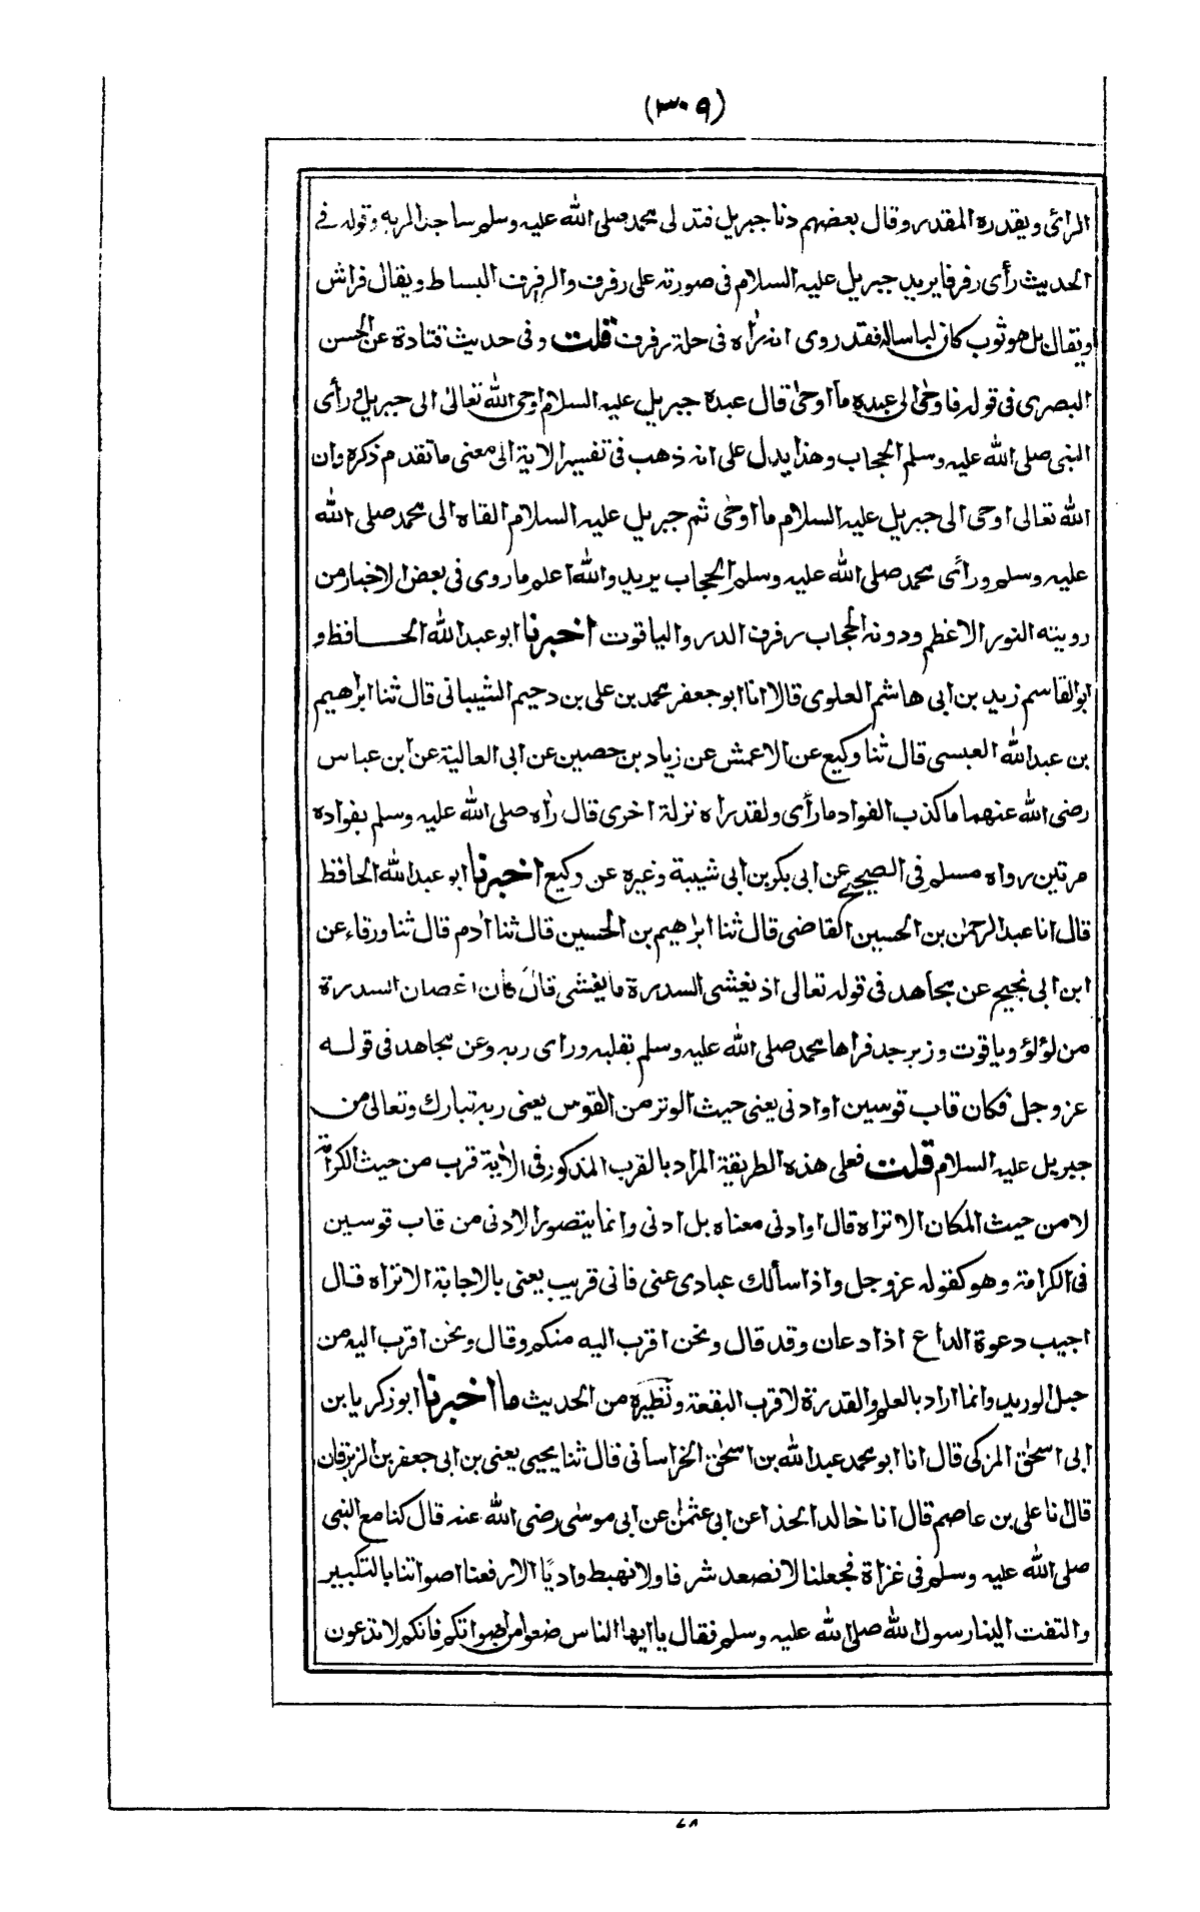 (٣٠٩)
الرائى ويقدره المقدر وقال بعضهم دنا جبريل فتدلى محمد صلى الله عليه وسلم ساجدا لربه وقوله فى
الحديث رأى رفرفا يريد جبريل عليه السلام فى صورته على رفرف والرفرف البساط ويقال فراش
ويقال بل هو ثوب كان لباسا له فقد روى انه رٰاه فى حلة رفرف قلت وفى حديث قتادة عن الحسن
البصرى فى قوله فاوحٰى الى عبده ما اوحٰى قال عبدہ جبريل عليه السلام اوحى الله تعالٰى الى جبريل ورأى
النبى صلى الله عليه وسلم الحجاب وهذا يدل على انه ذهب فى تفسير الاية الى معنى ما تقدم ذكره وان
الله تعالى اوحى الى جبريل عليه السلام ما اوحٰى ثم جبريل عليه السلام القاه الى محمد صلى الله
عليه وسلم ورأى محمد صلى الله عليه وسلم الحجاب يريد والله اعلم ما روى فى بعض الاخبار من
رويته النور الاعظم ودونه الحجاب رفرف الدر والياقوت اخبرنا ابو عبد الله الحــافظ و
ابو القاسم زيد بن ابى هاشم العلوى قالا انا ابو جعفر محمد بن على بن دحيم الشيبانى قال ثنا ابرٰاهيم
بن عبد الله العبسى قال ثنا وكيع عن الاعمش عن زياد بن حصين عن ابى العالية عن ابن عباس
رضى الله عنهما ما كذب الفواد ما رأى ولقد رٰاه نزلة اخرى قال رٰاه صلى الله عليه وسلم بفواده
مرتين رواه مسلم فى الصحيح عن ابى بكر بن ابى شيبة وغيره عن وكيع اخبرنا ابو عبد الله الحافظ
قال انا عبد الرحمٰن بن الحسين القاضى قال ثنا ابرٰهيم بن الحسين قال ثنا اٰدم قال ثنا ورقاء عن
ابن ابى نجيح عن مجاهد فى قوله تعالى اذ يغشى السدرة ما يغشى قال كان اغصان السدرة
من لؤلؤ وياقوت وزبرجد فراٰها محمد صلى الله عليه وسلم بقلبه ورأى ربه وعن مجاهد فى قولــه
عز وجل فكان قاب قوسين او ادنى يعنى حيث الوتر من القوس يعنى ربه تبارك وتعالى من
جبريل عليه السلام قلت فعلى هذه الطريقة المراد بالقرب المذكور فى الاٰية قرب من حيث الكرامة
لا من حيث المكان الا تراه قال او ادنى معناه بل ادنى وانما يتصور الادنى من قاب قوسين
فى الكرامة وهو كقوله عز وجل واذا سألك عبادى عنى فانى قريب يعنى بالاجابة الا تراه قال
اجيب دعوة الداع اذا دعان وقد قال ونحن اقرب اليه منكم وقال ونحن اقرب اليه من
حبل الوريد وانما اراد بالعلم والقدرة لا قرب البقعة ونظيره من الحديث ما اخبرنا ابو زكريا بن
ابى اسحٰق المزكى قال انا ابو محمد عبد الله بن اسحٰق الخراسانى قال ثنا يحيى يعنى بن ابى جعفر بن الزبرقان
قال انا على بن عاصم قال انا خالد الحذا عن ابى عثمٰن عن ابى موسٰى رضى الله عنه قال كنا مع النبى
صلى الله عليه وسلم فى غزاة فجعلنا لا نصعد شرفا ولا نهبط واديًا الا رفعنا اصواتنا بالتكبير
والتفت الينا رسول الله صلى الله عليه وسلم فقال يا ايها الناس ضعوا من اصواتكم فانكم لا تدعون